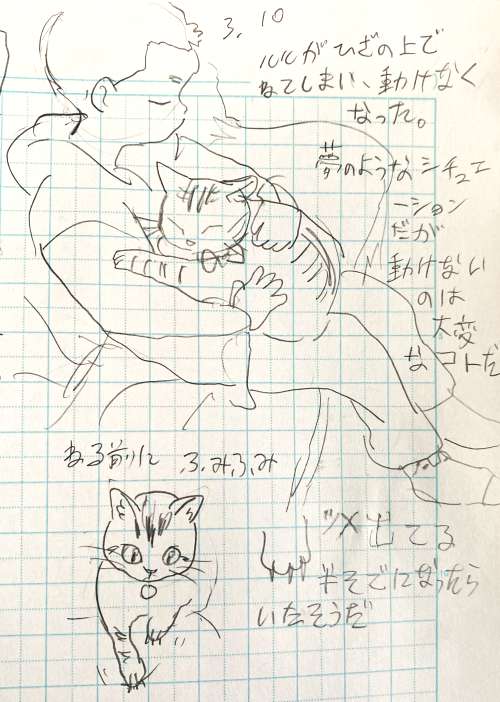 3, 10
ルルがひざの上で
ねてしまい、動けなく
なった。
夢のようなシチュエ
ーション
だが
動けない
のは
大変
なコトだ
ねる前に ふ、み、ふ、み
ツメ出てる
半そでになったら
いたそうだ